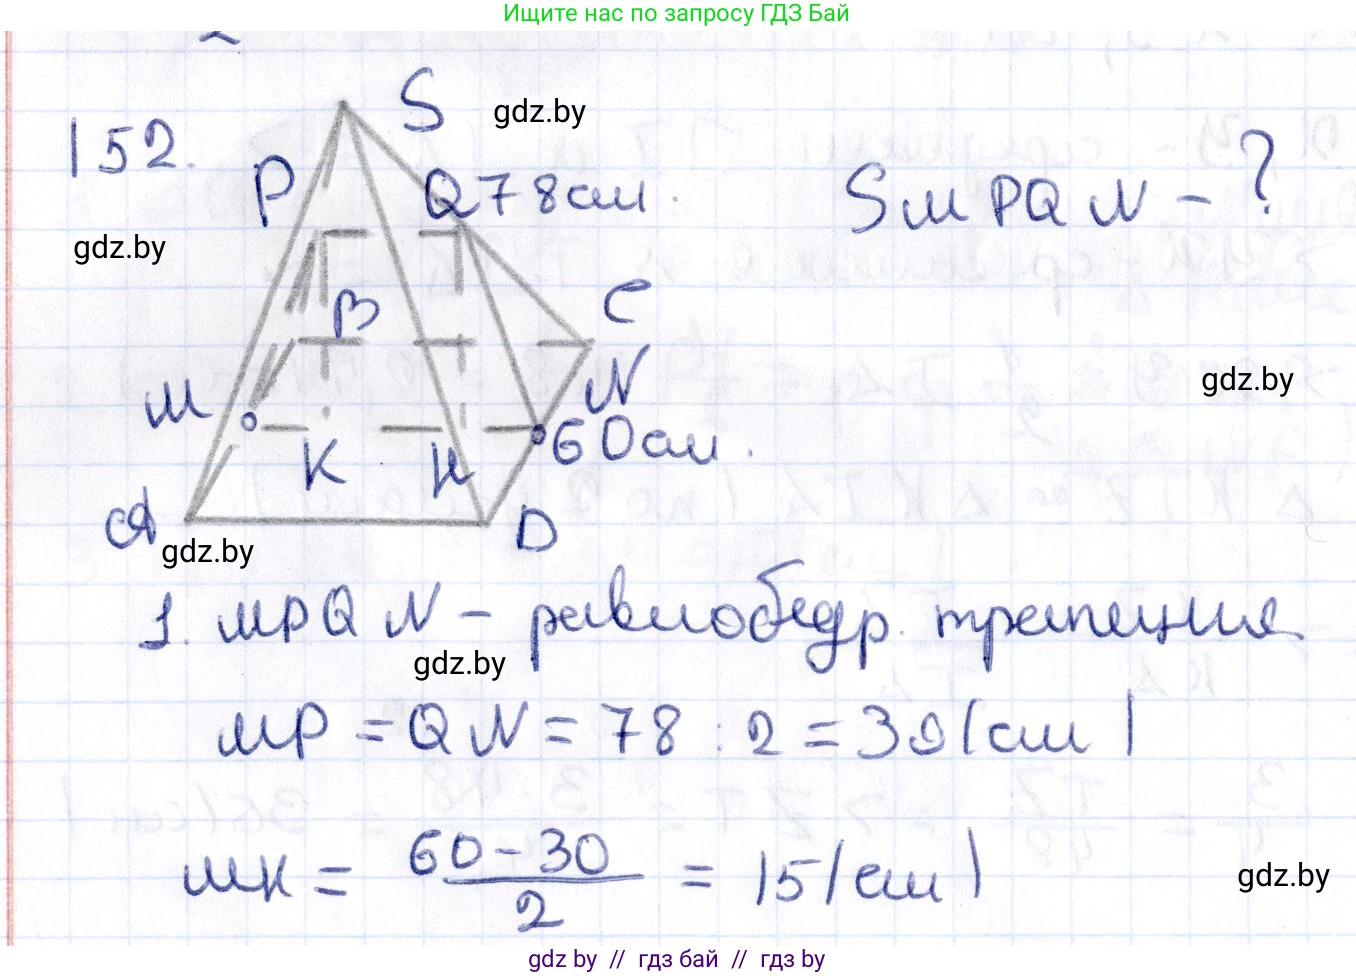 Ищите нас по запросу ГДЗ Бай
152.
S
gdz.by
P
Q 78 см.
SMPQN - ?
gdz.by
B
C
M
N
gdz.by
K
H
60 см.
A
D
gdz.by
1. MPQN - равнобедр. трапеция
gdz.by
MP = QN = 78 : 2 = 39 (см)
MK = \frac{60 - 30}{2} = 15 (см)
gdz.by
gdz.by // гдз бай // гдз by